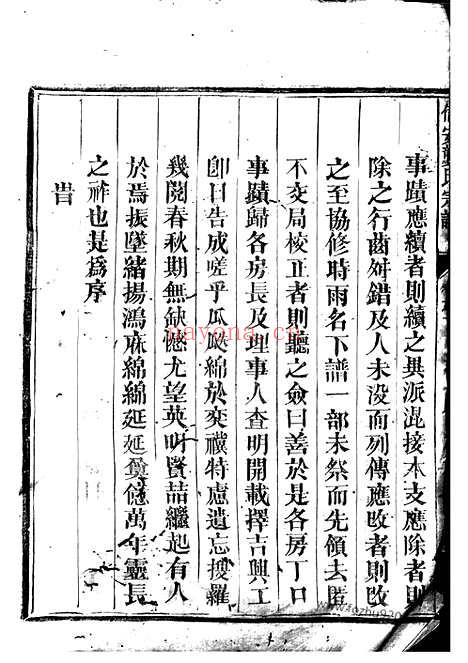 事蹟應續者則續之異派混接本支應除者則
除之行齒舛錯及人未没而列傳應改者則改
之至協修時雨名下譜一部未祭而先領去匿
不交局校正者則聽之僉曰善於是各房丁口
事蹟歸各房長及理事人查明開載擇吉興工
卽日告成嗟乎瓜瓞綿於奕禩特慮遺忘搜羅
幾閱春秋期無缺憾尤望英叫賢喆繼起有人
於焉振墜緒揚鴻庥綿綿延延億萬年靈長
之祚也是爲序
旹
nayona.cn